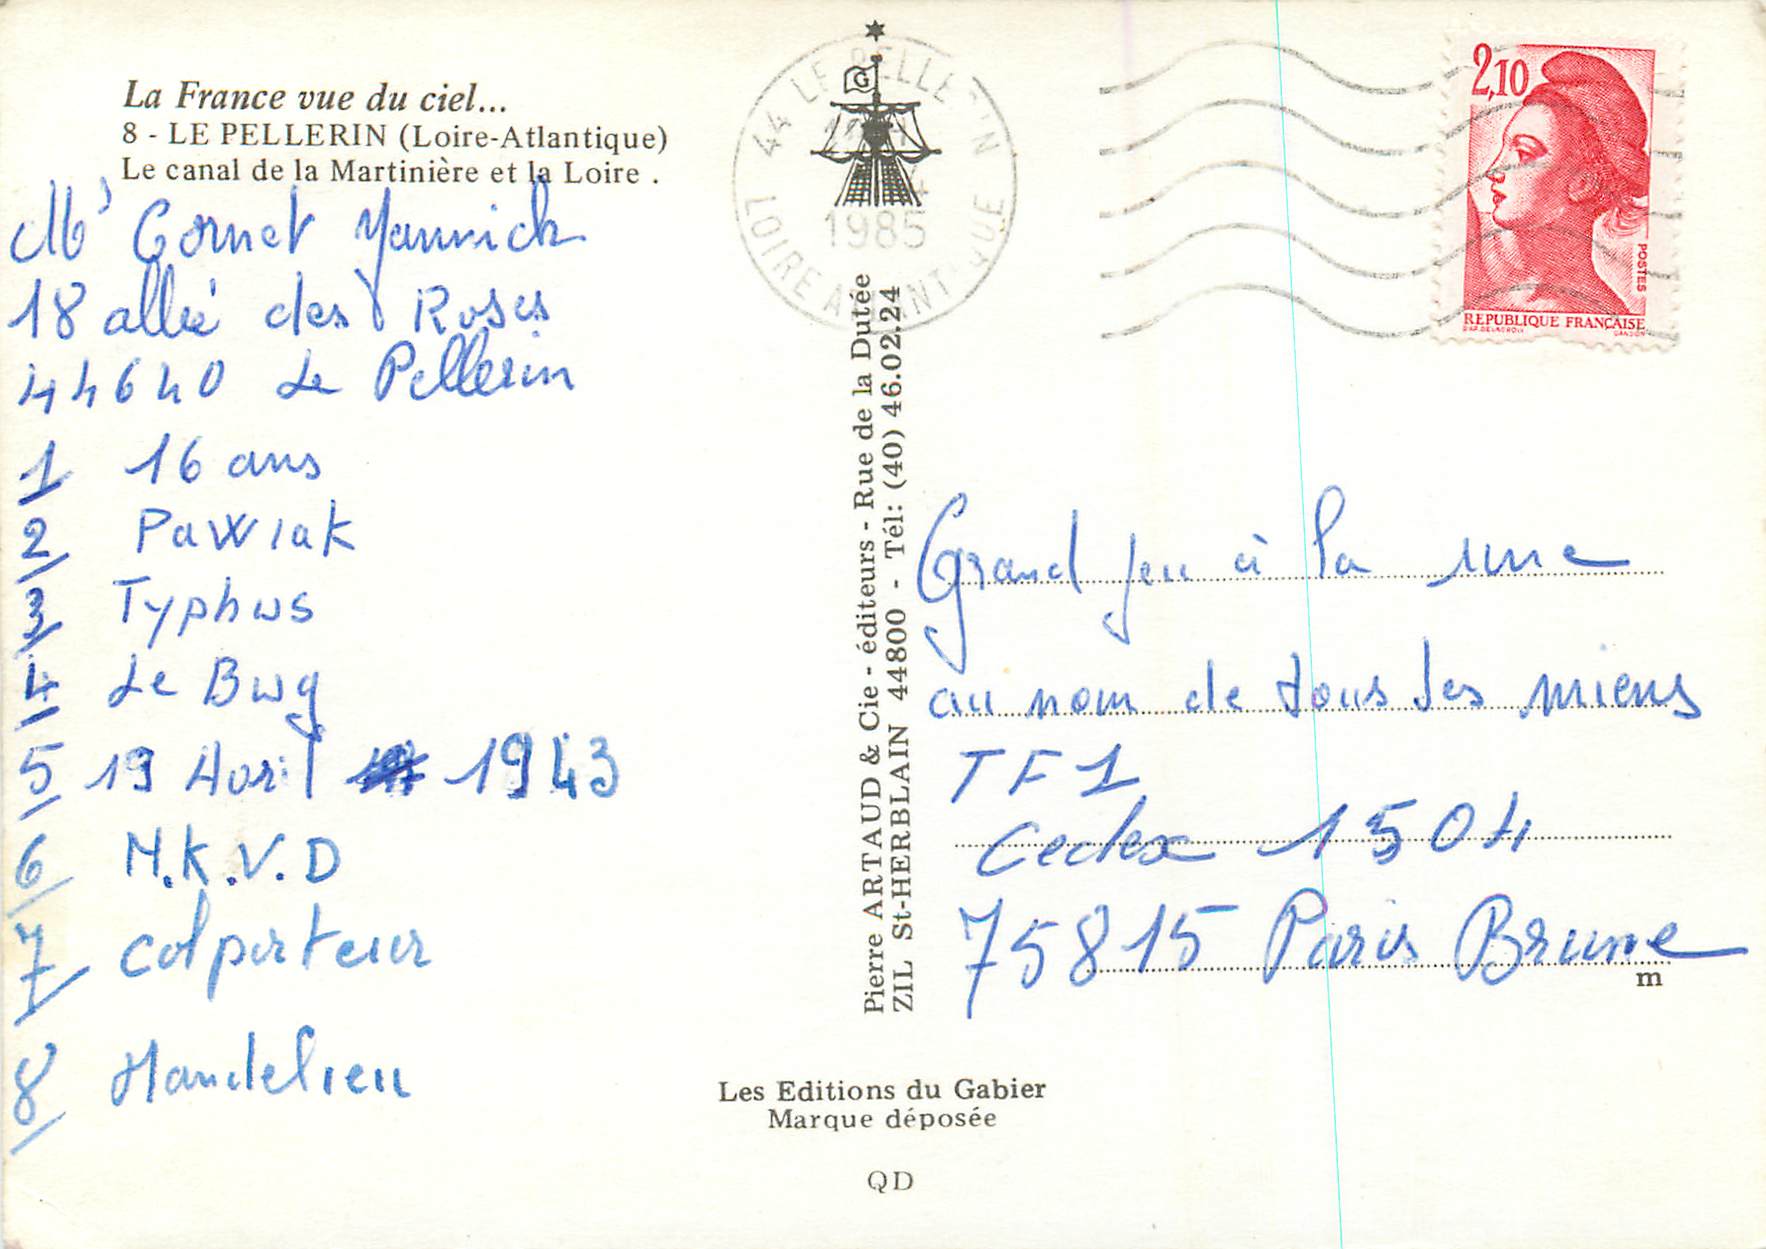 La France vue du ciel...
8 - LE PELLERIN (Loire-Atlantique)
Le canal de la Martinière et la Loire .
Mr Cornet Yannick
18 allée des Roses
44640 Le Pellerin
1 16 ans
2 Pawiak
3 Typhus
4 Le Bug
5 19 Avril 1943
6 N.K.V.D
7 colporteur
8 Mandelieu
44 LE PELLERIN
1985
LOIRE ATLANTIQUE
G
Pierre ARTAUD & Cie - éditeurs - Rue de la Dutée
ZIL St-HERBLAIN 44800 - Tél: (40) 46.02.24
Les Editions du Gabier
Marque déposée
QD
2,10
POSTES
REPUBLIQUE FRANÇAISE
D'AP. DELACROIX GANDON
Grand jeu à la une
au nom de tous les miens
TF1
Cedex 1504
75815 Paris Brune
m